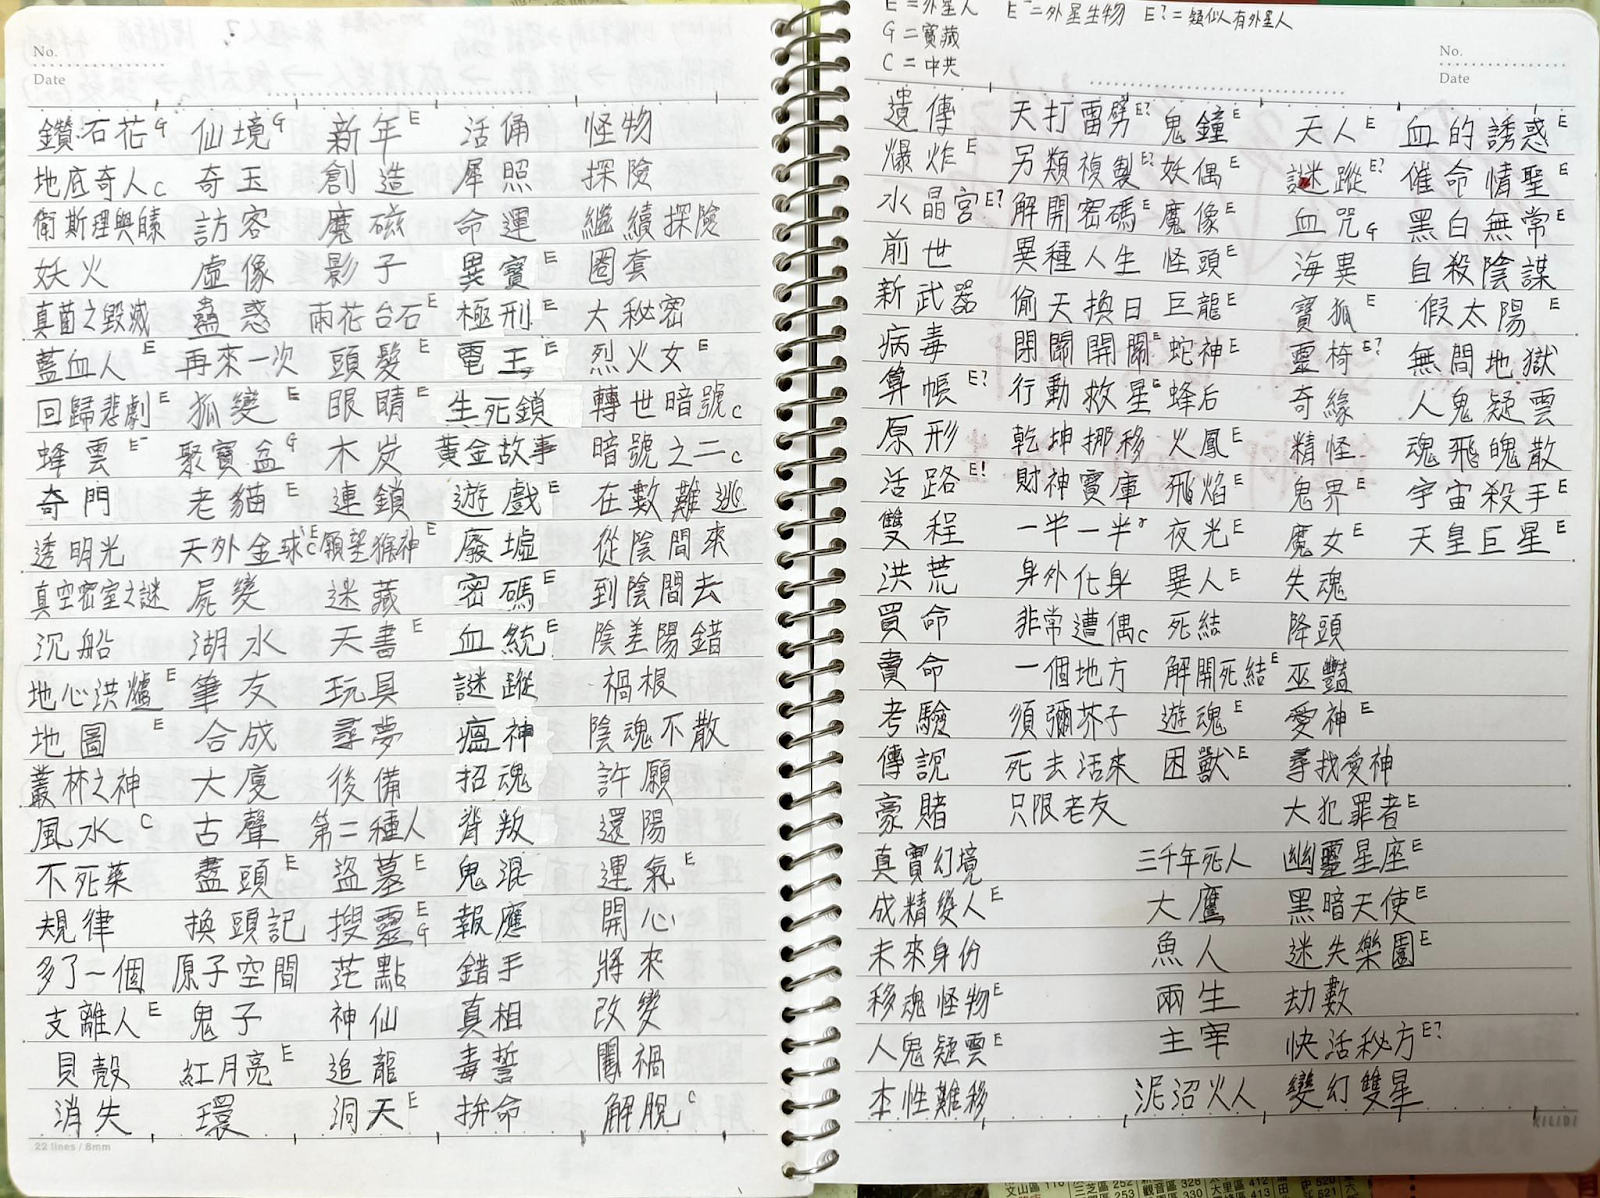 No.
Date
鑽石花G 仙境G 新年E 活俑 怪物
地底奇人C 奇玉 創造 犀照 探險
衛斯理與 訪客 魔磁 命運 繼續探險
妖火 虛像 影子 異寶E 圈套
真菌之毀滅 蠱惑 雨花台石E 極刑E 大秘密
藍血人E 再來一次 頭髮E 電王E 烈火女E
回歸悲劇E 狐變E 眼睛E 生死鎖 轉世暗號C
蜂雲E⁻ 聚寶盆G 木炭 黃金故事 暗號之二C
奇門 老貓E 連鎖 遊戲E 在數難逃
透明光 天外金球EC 願望猴神E 廢墟 從陰間來
真空密室之謎 屍變 迷藏 密碼E 到陰間去
沉船 湖水 天書E 血統E 陰差陽錯
地心洪爐E 筆友 玩具 謎蹤 禍根
地圖E 合成 尋夢 瘟神 陰魂不散
叢林之神 大廈 後備 招魂 許願
風水C 古聲 第二種人 背叛 還陽
不死藥 盡頭E 盜墓E 鬼混 運氣E
規律 換頭記 搜靈EG 報應 開心
多了一個 原子空間 茫點 錯手 將來
支離人E 鬼子 神仙 真相 改變
貝殼 紅月亮E 追龍 毒誓 闖禍
消失 環 洞天E 拚命 解脫C
22 lines / 8mm
E=外星人 E⁻=外星生物 E?=疑似有外星人
G=寶藏
C=中共
No.
Date
遺傳 天打雷劈E? 鬼鐘E 天人E 血的誘惑E
爆炸E 另類複製E? 妖偶E 謎蹤E? 催命情聖E
水晶宮E? 解開密碼E 魔像E 血咒G 黑白無常E
前世 異種人生 怪頭E 海異 自殺陰謀
新武器 偷天換日 巨龍E 寶狐E 假太陽E
病毒 閉關開關E 蛇神E 靈椅E? 無間地獄
算帳E? 行動救星E 蜂后 奇緣 人鬼疑雲
原形 乾坤挪移 火鳳E 精怪 魂飛魄散
活路E! 財神寶庫 飛焰E 鬼界E 宇宙殺手E
雙程 一半一半 夜光E 魔女E 天皇巨星E
洪荒 身外化身 異人E 失魂
買命 非常遭遇C 死結 降頭
賣命 一個地方 解開死結E 巫豔
考驗 須彌芥子 遊魂E 愛神E
傳說 死去活來 困獸E 尋找愛神
豪賭 只限老友 大犯罪者E
真實幻境 三千年死人 幽靈星座E
成精變人E 大鷹 黑暗天使E
未來身份 魚人 迷失樂園E
移魂怪物E 兩生 劫數
人鬼疑雲E 主宰 快活秘方E?
本性難移 泥沼火人 變幻雙星
KILIDI